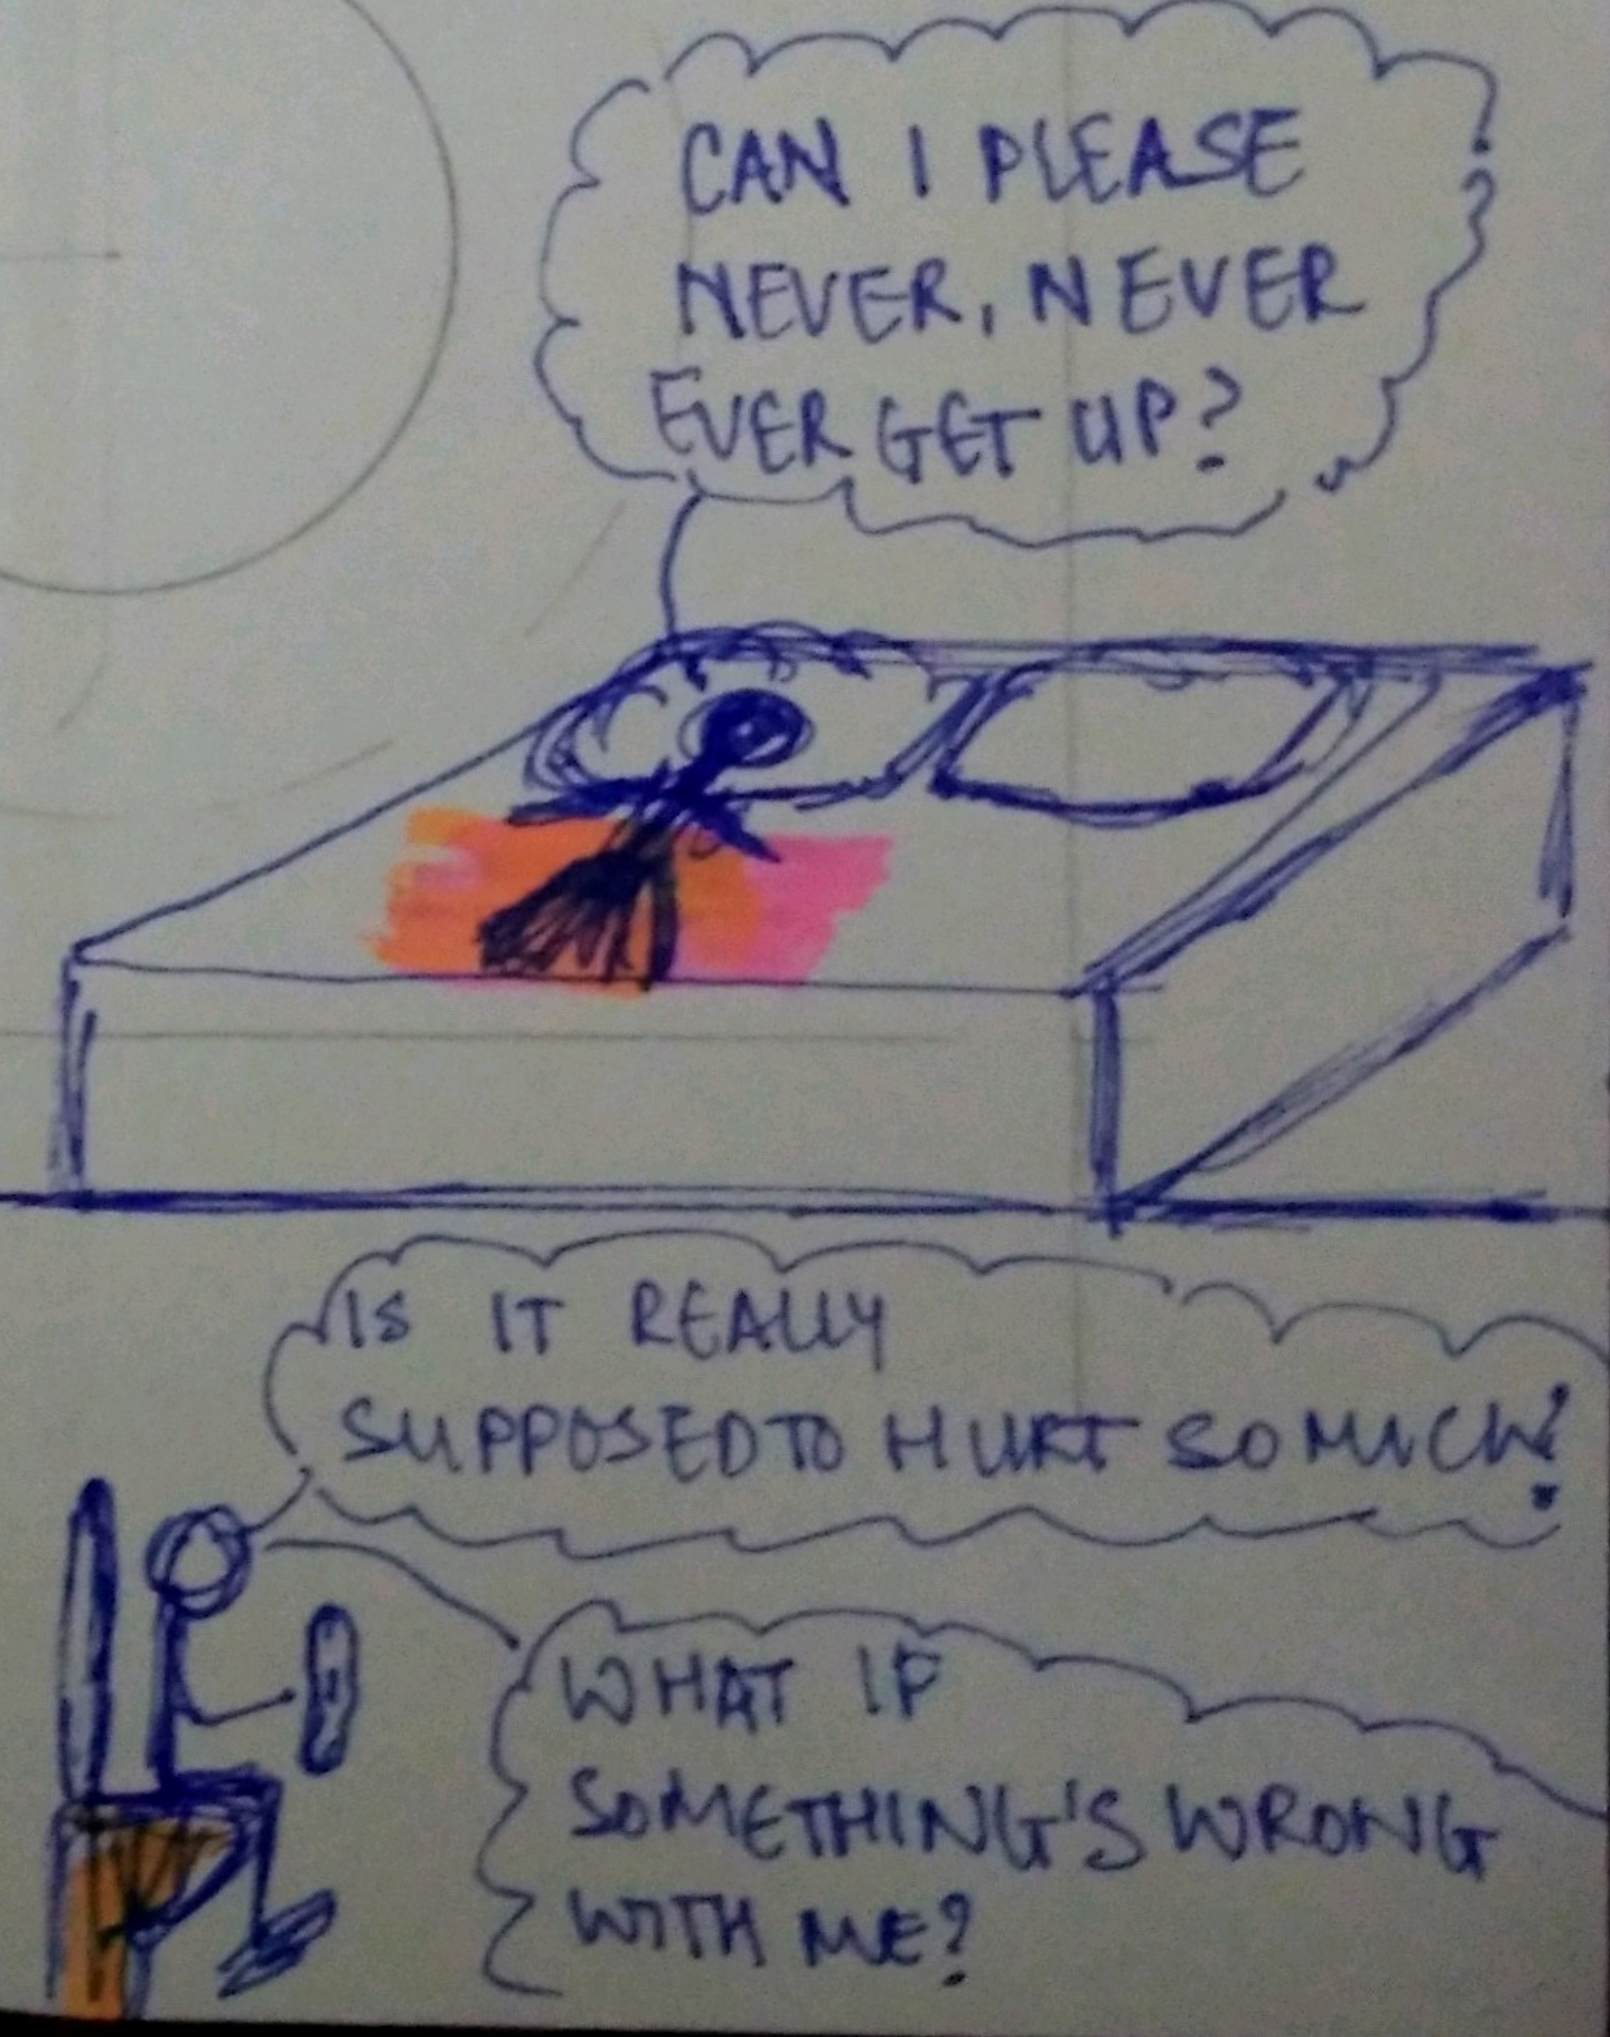 CAN I PLEASE
NEVER, NEVER
EVER GET UP?
IS IT REALLY
SUPPOSED TO HURT SO MUCH?
WHAT IF
SOMETHING'S WRONG
WITH ME?